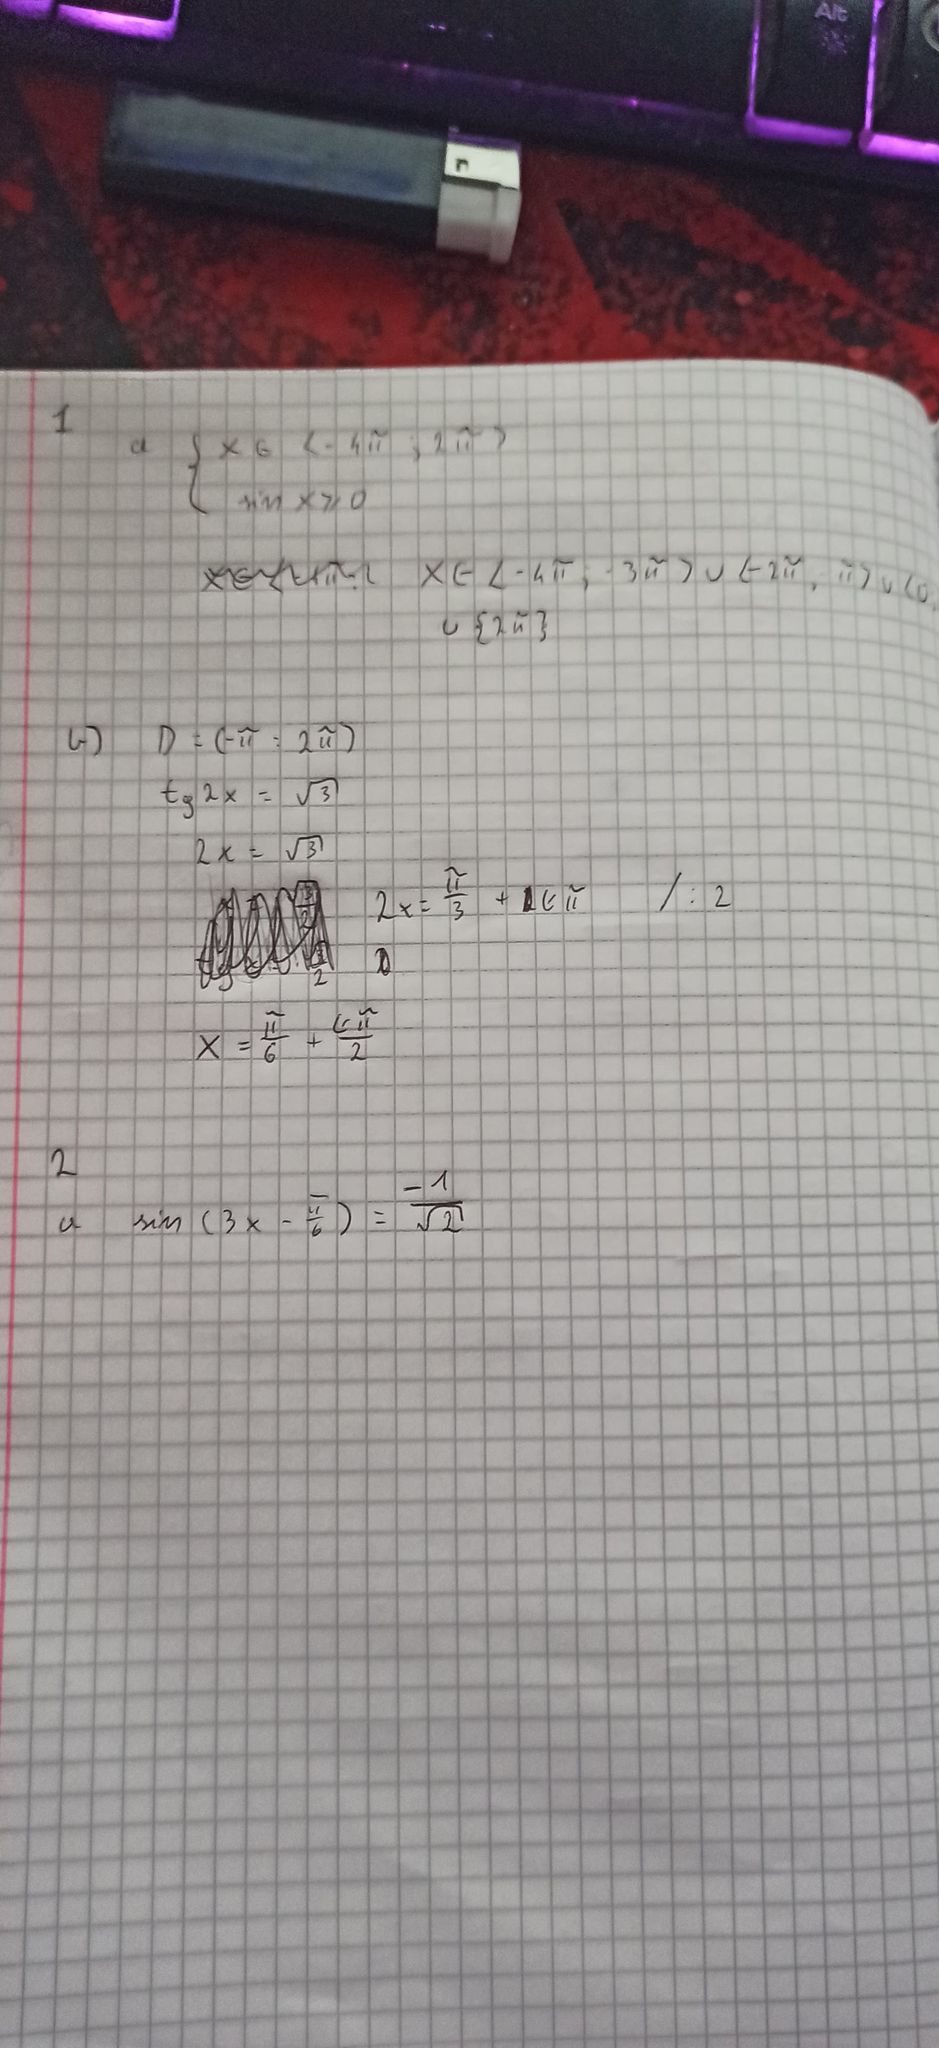 Alt
1
a { x ∈ <-4π ; 2π>
sin x ≥ 0
x ∈ <-4π ; -3π> ∪ <-2π, π> ∪ <0,
∪ {2π}
b) D = (-π ; 2π)
tg 2x = √3
2x = √3
2x = π/3 + kπ / : 2
x = π/6 + kπ/2
2
a sin (3x - π/6) = -1/√2